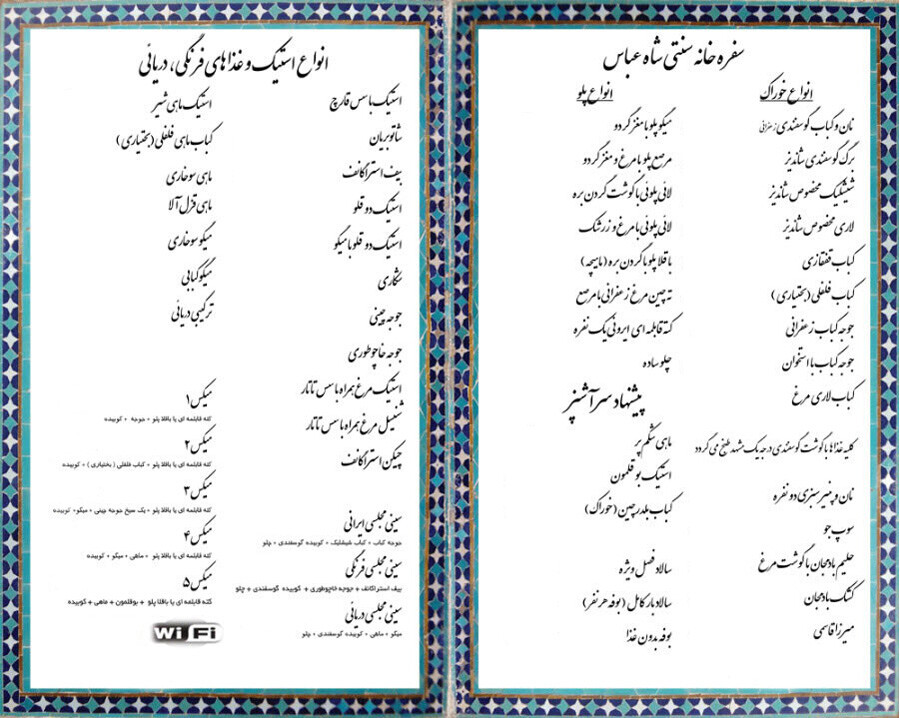 سفره خانه سنتی شاه عباس
انواع خوراک
نان و کباب گوسفندی زعفرانی
برگ گوسفندی شاندیز
شیشلیک مخصوص شاندیز
لاری مخصوص شاندیز
کباب قفقازی
کباب فلفلی (بختیاری)
جوجه کباب زعفرانی
جوجه کباب با استخوان
کباب لاری مرغ
کلیه غذاها با گوشت گوسفندی درجه یک مشهد طبخ می گردد
نان و پنیر سبزی دو نفره
سوپ جو
حلیم بادمجان با گوشت مرغ
کشک بادمجان
میرزا قاسمی
انواع پلو
میگو پلو با مغز گردو
مرصع پلو با مرغ و مغز گردو
لائی پلوئی با گوشت گردن بره
لائی پلوئی با مرغ و زرشک
باقلا پلو با گردن بره (ماهیچه)
ته چین مرغ زعفرانی با مرصع
کته قابلمه ای ایرونی یک نفره
چلو ساده
پیشنهاد سرآشپز
ماهی شکم پر
استیک بوقلمون
کباب بلدرچین (خوراک)
سالاد فصل ویژه
سالاد بار کامل (بوفه هر نفر)
بوفه بدون غذا
انواع استیک و غذاهای فرنگی، دریائی
استیک با سس قارچ
شاتوبریان
بیف استراگانف
استیک دو قلو
استیک دو قلو با میگو
شکاری
جوجه چینی
جوجه خاچوطوری
استیک مرغ همراه با سس تاتار
شنیسل مرغ همراه با سس تاتار
چیکن استراگانف
سینی مجلسی ایرانی
جوجه کباب + کباب شیشلیک + کوبیده گوسفندی + چلو
سینی مجلسی فرنگی
بیف استراگانف + جوجه خاچوطوری + کوبیده گوسفندی + چلو
سینی مجلسی دریائی
میگو + ماهی + کوبیده گوسفندی + چلو
استیک ماهی شیر
کباب ماهی فلفلی (بختیاری)
ماهی سوخاری
ماهی قزل آلا
میگو سوخاری
میگو کبابی
ترکیبی دریائی
میکس ۱
کته قابلمه ای یا باقلا پلو + جوجه + کوبیده
میکس ۲
کته قابلمه ای یا باقلا پلو + کباب فلفلی (بختیاری) + کوبیده
میکس ۳
کته قابلمه ای یا باقلا پلو + یک سیخ جوجه چینی + میگو + کوبیده
میکس ۴
کته قابلمه ای یا باقلا پلو + ماهی + میگو + کوبیده
میکس ۵
کته قابلمه ای یا باقلا پلو + بوقلمون + ماهی + کوبیده
Wi Fi